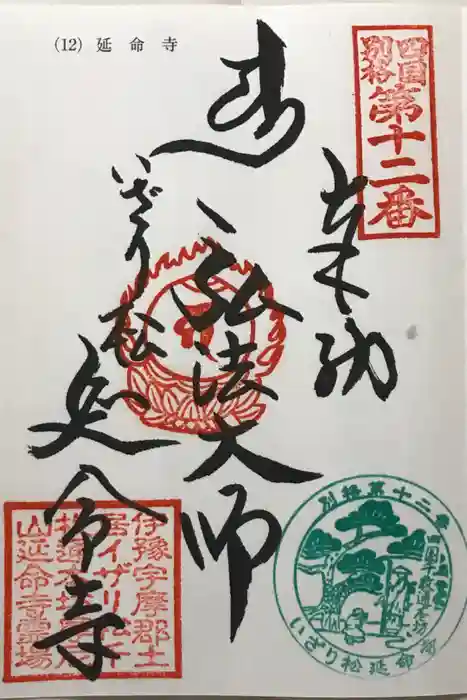 (12) 延命寺
四国
別格
第十二番
奉納
弘法大師
いざり松
延命寺
伊豫宇摩郡土
居イザリ松千
山延命寺霊場
別格第十二番
いざり松延命寺